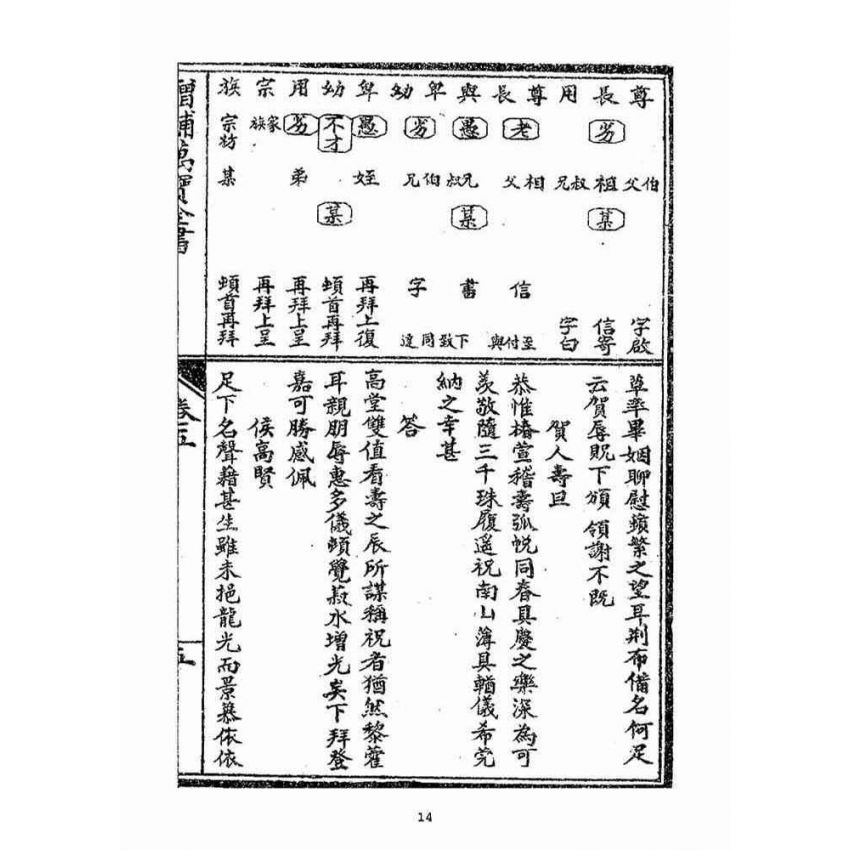 增補萬寶全書
卷五
五
尊長用尊長與卑幼卑幼用宗族
劣 老 愚 劣 愚 不才 劣 家族 宗坊
伯父 祖 叔兄 相父 叔兄 伯兄 姪 弟 某
某 某 某
字啟
信寄
字白
信 至付與
書 下致
字 同達
再拜上復
頓首再拜
再拜上呈
再拜上呈
頓首再拜
草率畢姻聊慰蘋蘩之望耳荊布備名何足
云賀辱貺下頒領謝不既
賀人壽旦
恭惟椿萱稽壽弧帨同春具慶之樂深為可
羨敬隨三千珠履遥祝南山薄具輶儀希莞
納之幸甚
答
高堂雙值看壽之辰所謀稱祝者猶然黎藿
耳親朋辱惠多儀頓覺菽水增光矣下拜登
嘉可勝感佩
侯高賢
足下名聲藉甚生雖未挹龍光而景慕依依
14